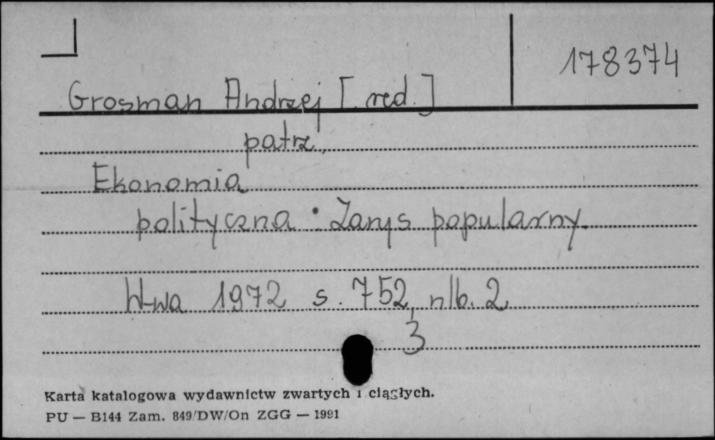 178374
Grosman Andrzej [red.]
patrz
Ekonomia
polityczna : Zarys popularny.
W-wa 1972 s. 752, nlb. 2
3
Karta katalogowa wydawnictw zwartych i ciągłych.
PU — B144 Zam. 849/DW/On ZGG — 1991